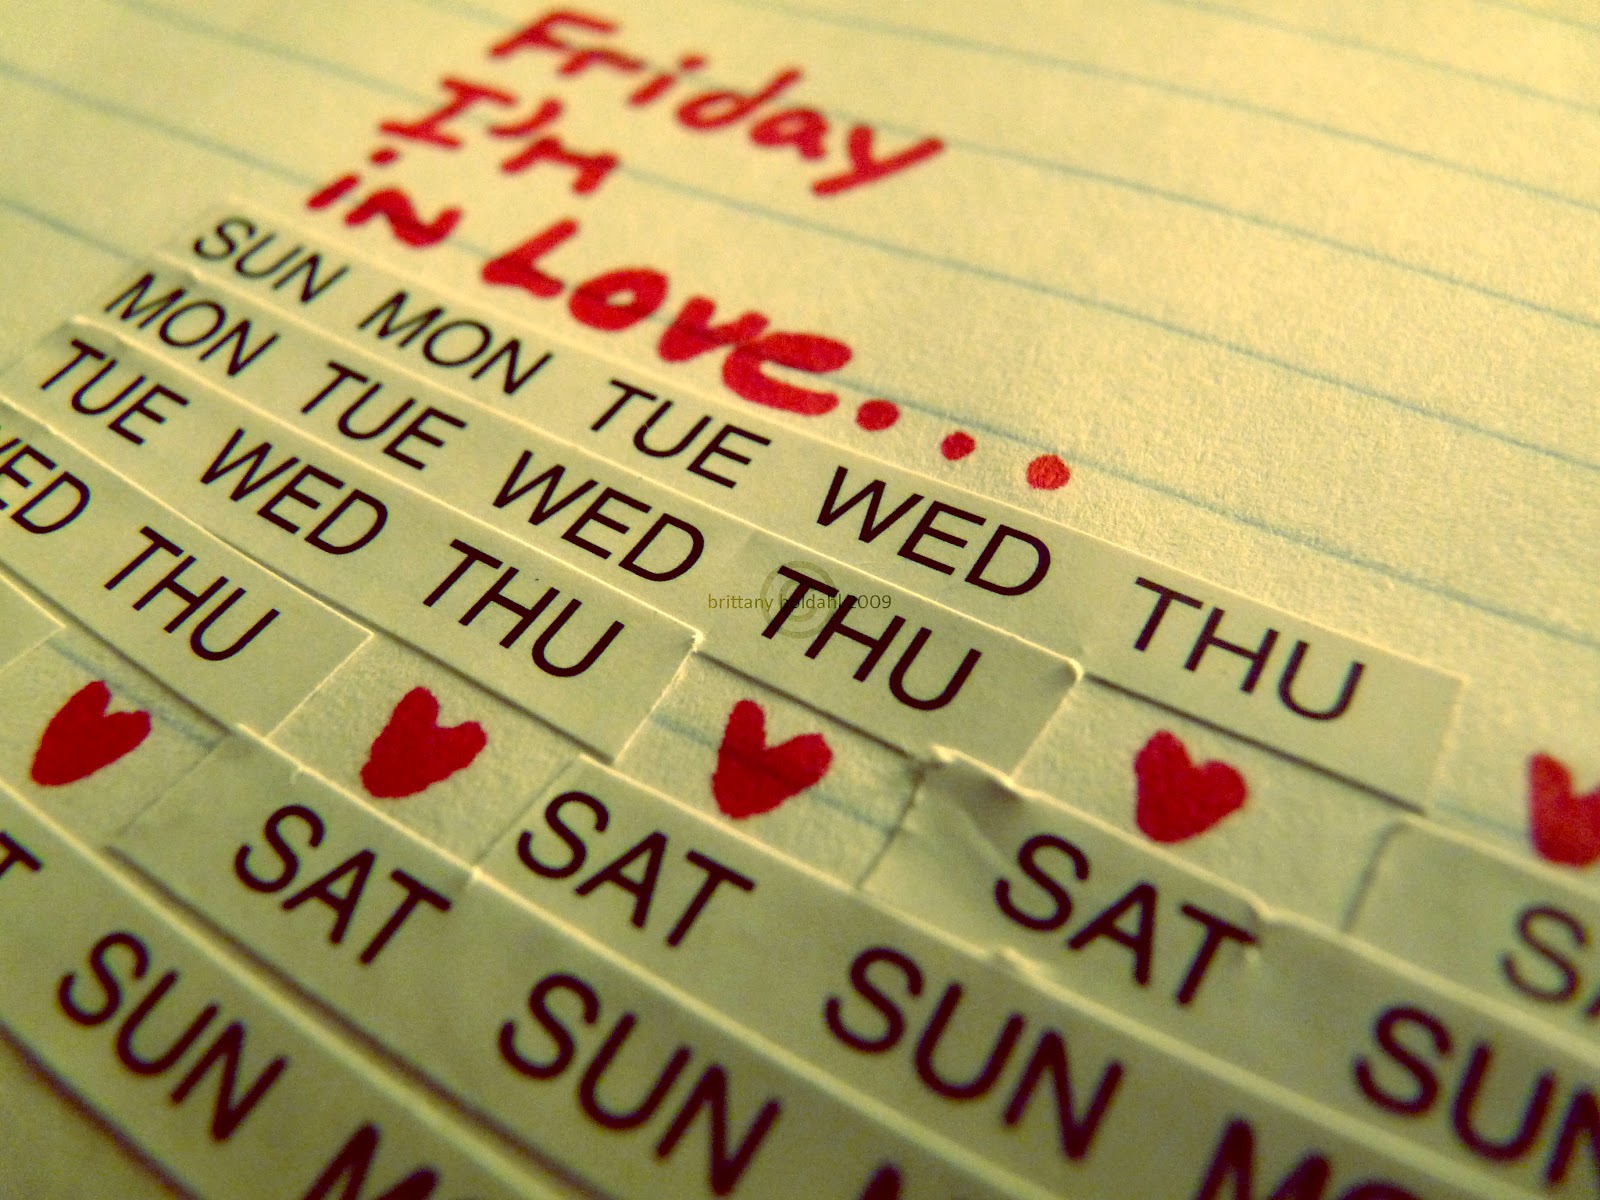 Friday
I'm
in Love...
SUN MON TUE WED THU
MON TUE WED THU
TUE WED THU
ED THU
© brittany holdahl 2009
S
SAT SUN
SAT SUN MO
SAT SUN
T SUN M